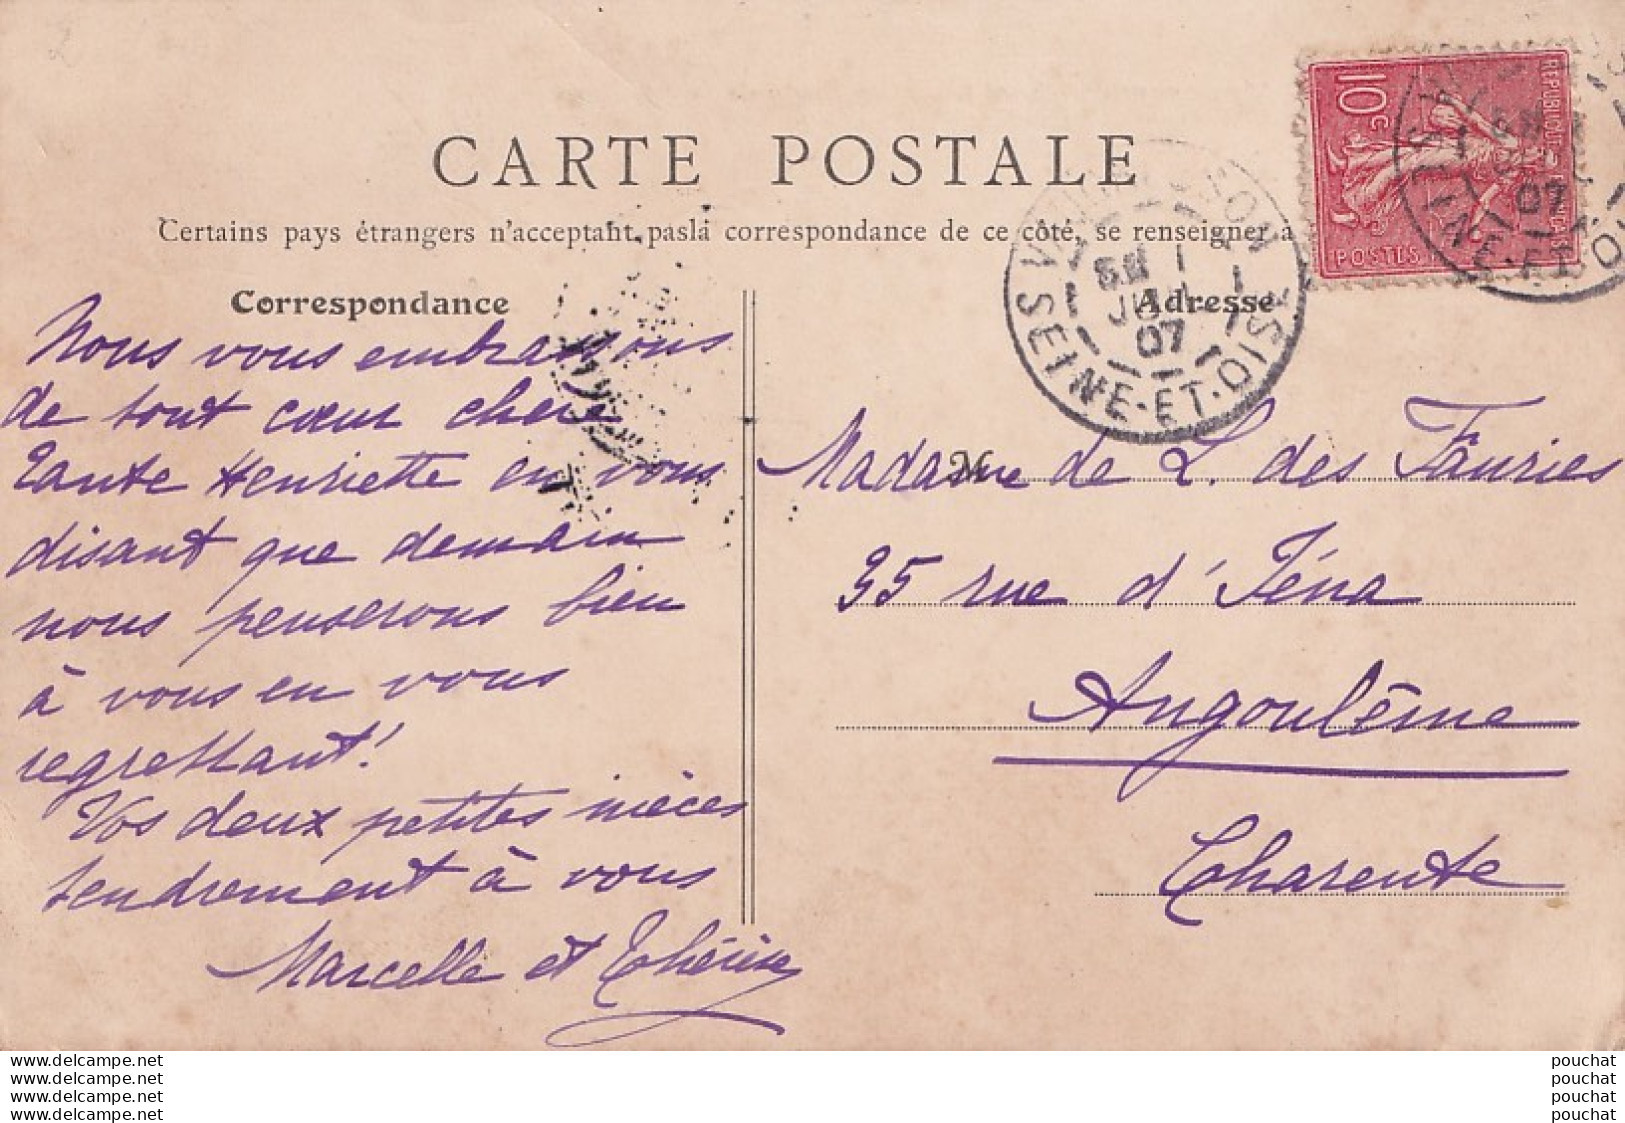 CARTE POSTALE
Certains pays étrangers n'acceptant pas la correspondance de ce côté, se renseigner à
Correspondance
Nous vous embrassons
de tout cœur chère
Tante Henriette en vous
disant que demain
nous penserons bien
à vous en vous
regrettant!
Vos deux petites nièces
tendrement à vous
Marcelle et Thérèse
Adresse
M
Madame de L. des Fauries
35 rue d'Iéna
Angoulême
Charente
10c
REPUBLIQUE FRANÇAISE
POSTES
SEINE-ET-OISE
07
SEINE-ET-OISE
07
www.delcampe.net
www.delcampe.net
www.delcampe.net
www.delcampe.net
pouchat
pouchat
pouchat
pouchat